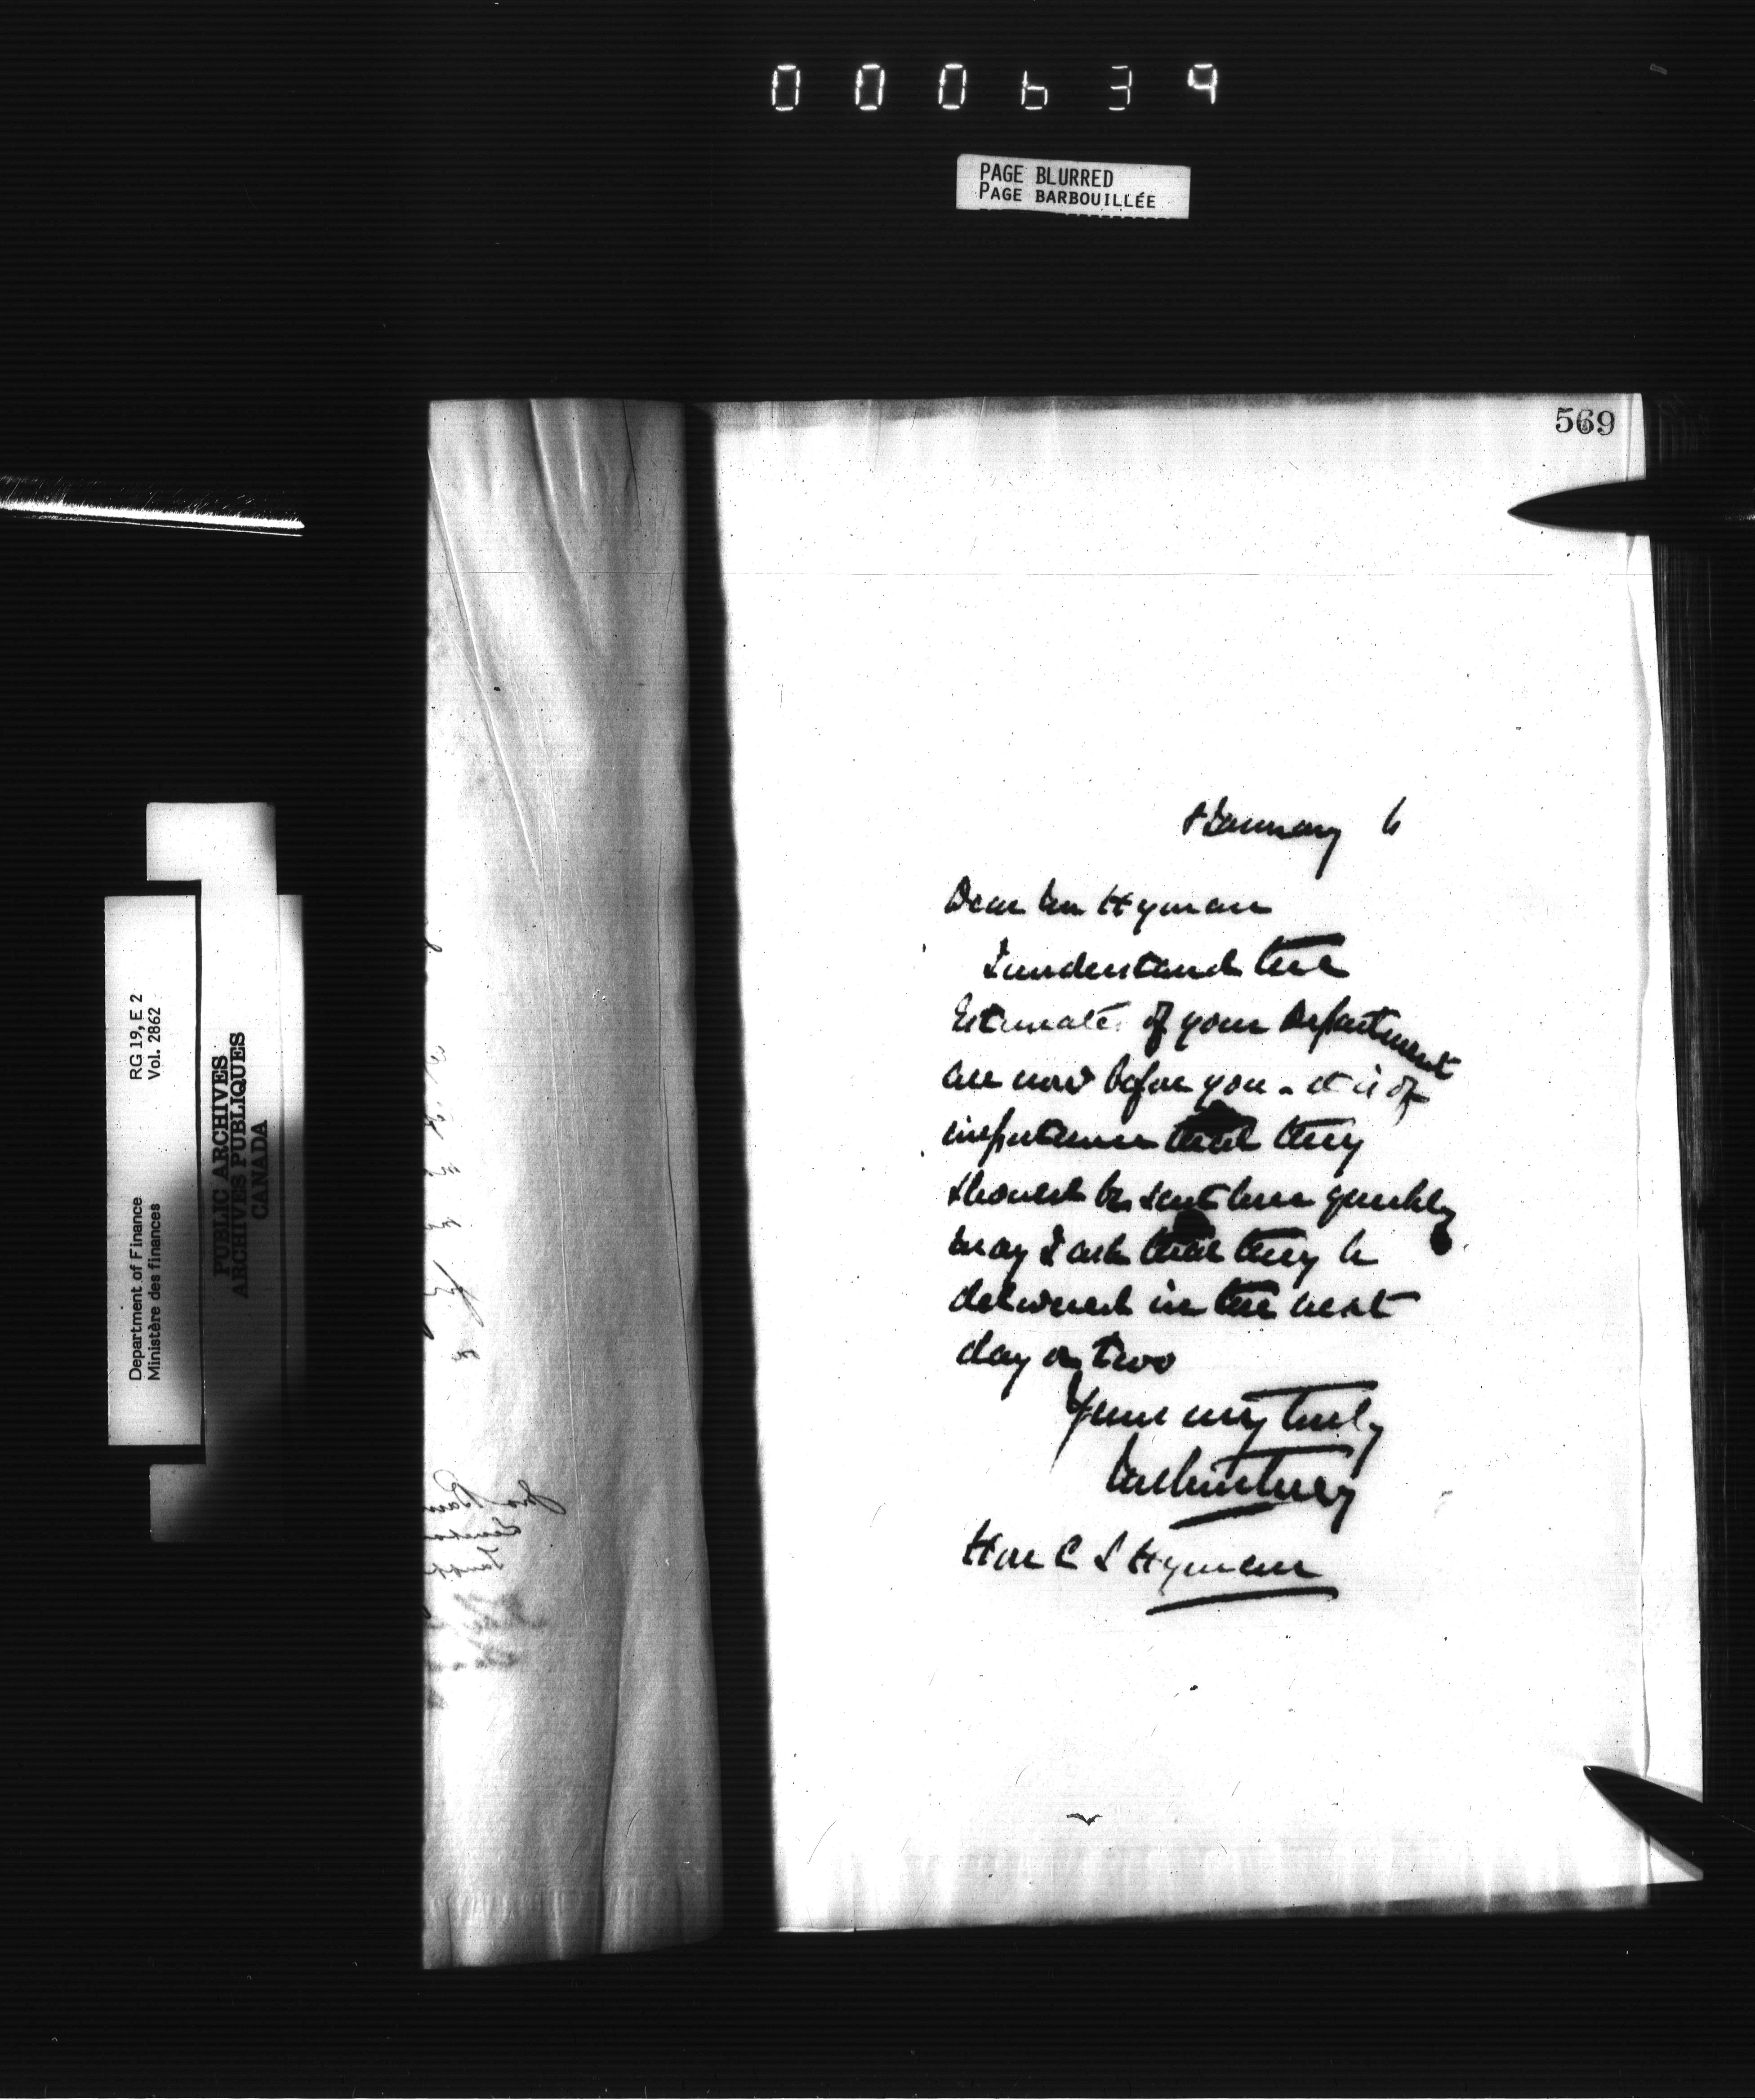 000639
PAGE BLURRED
PAGE BARBOUILLÉE
569
RG 19, E 2
Vol. 2862
Department of Finance
Ministère des finances
PUBLIC ARCHIVES
ARCHIVES PUBLIQUES
CANADA
January 6
Dear Mr Hyman
I understand the
Estimates of your Department
are now before you. It is of
importance that they
should be sent here quickly
may I ask that they be
delivered in the next
day or two
Yours very truly
Hon C S Hyman